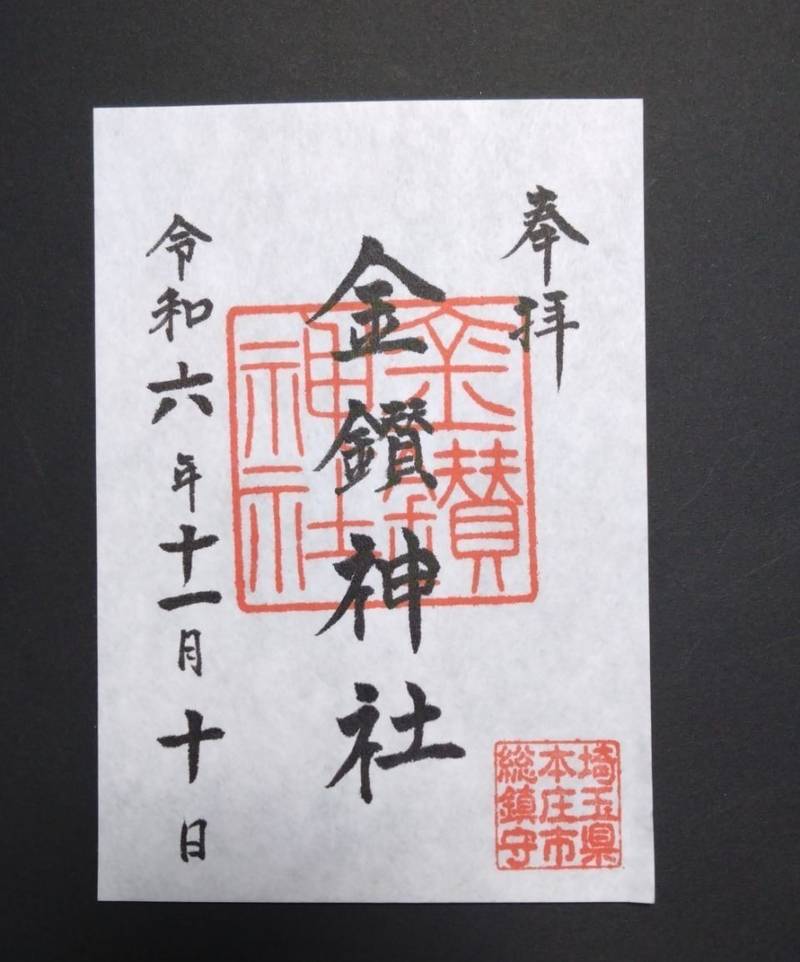 奉拝
金鑚神社
金鑚神社
令和六年十一月十日
埼玉県
本庄市
総鎮守